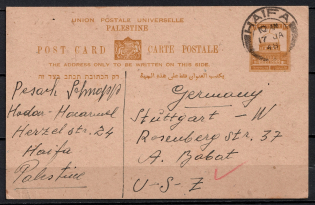 UNION POSTALE UNIVERSELLE
PALESTINE
POST CARD CARTE POSTALE
THE ADDRESS ONLY TO BE WRITTEN ON THIS SIDE.
רק הכתובת תכתב בצד זה
HAIFA
17 JA
Pesach
Hadar-Hacarmel
Herzel str. 24
Haifa
Palestine
Germany
Stuttgart - W
Rosenberg str. 37
A. Babat
U-S-Z